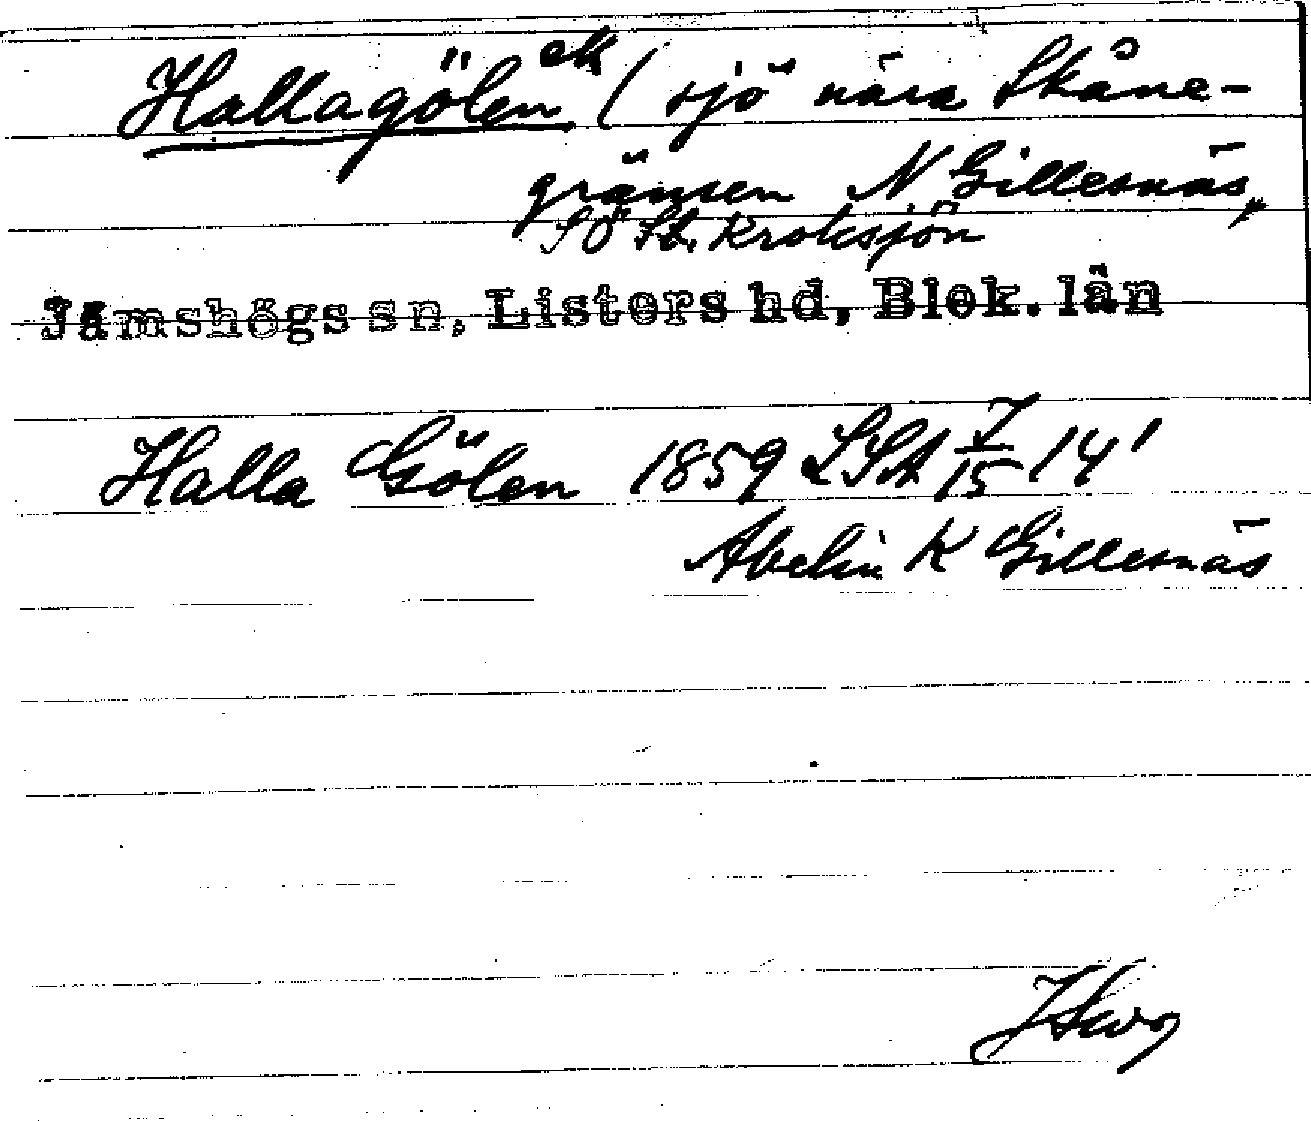 Hallagölen ek ( sjö nära Skåne-
gränsen N Gillesnäs,
SÖ St. Kroksjön
Jämshögs sn, Listers hd, Blek. län
Halla Gölen 1859 LSA 7/15 14'
Abelin K Gillesnäs